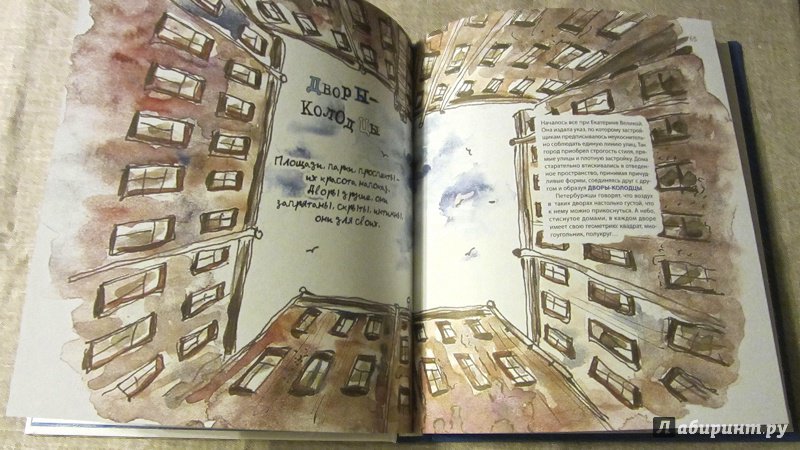 Дворы-
колодцы
Площади, парки, проспекты –
их красота напоказ.
Дворы другие, они
запрятаны, скрыты, интимны,
они для своих.
65
Началось все при Екатерине Великой.
Она издала указ, по которому застрой-
щикам предписывалось неукоснитель-
но соблюдать единую линию улиц. Так
город приобрел строгость стиля, пря-
мые улицы и плотную застройку. Дома
старательно втискивались в отведен-
ное пространство, принимая причуд-
ливые формы, соединяясь друг с дру-
гом и образуя ДВОРЫ-КОЛОДЦЫ.
Петербуржцы говорят, что воздух
в таких дворах настолько густой, что
к нему можно прикоснуться. А небо,
стиснутое домами, в каждом дворе
имеет свою геометрию: квадрат, мно-
гоугольник, полукруг...
Лабиринт.ру